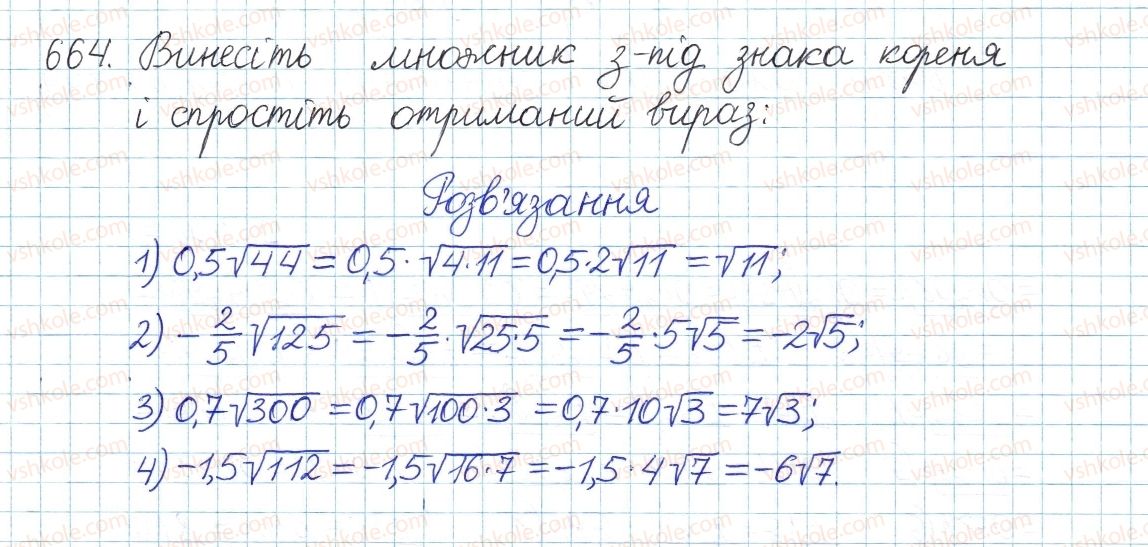 664. Винесіть множник з-під знака кореня
і спростіть отриманий вираз:
Розв'язання
1) 0,5√44 = 0,5·√4·11 = 0,5·2√11 = √11;
2) -2/5√125 = -2/5·√25·5 = -2/5·5√5 = -2√5;
3) 0,7√300 = 0,7√100·3 = 0,7·10√3 = 7√3;
4) -1,5√112 = -1,5√16·7 = -1,5·4√7 = -6√7.